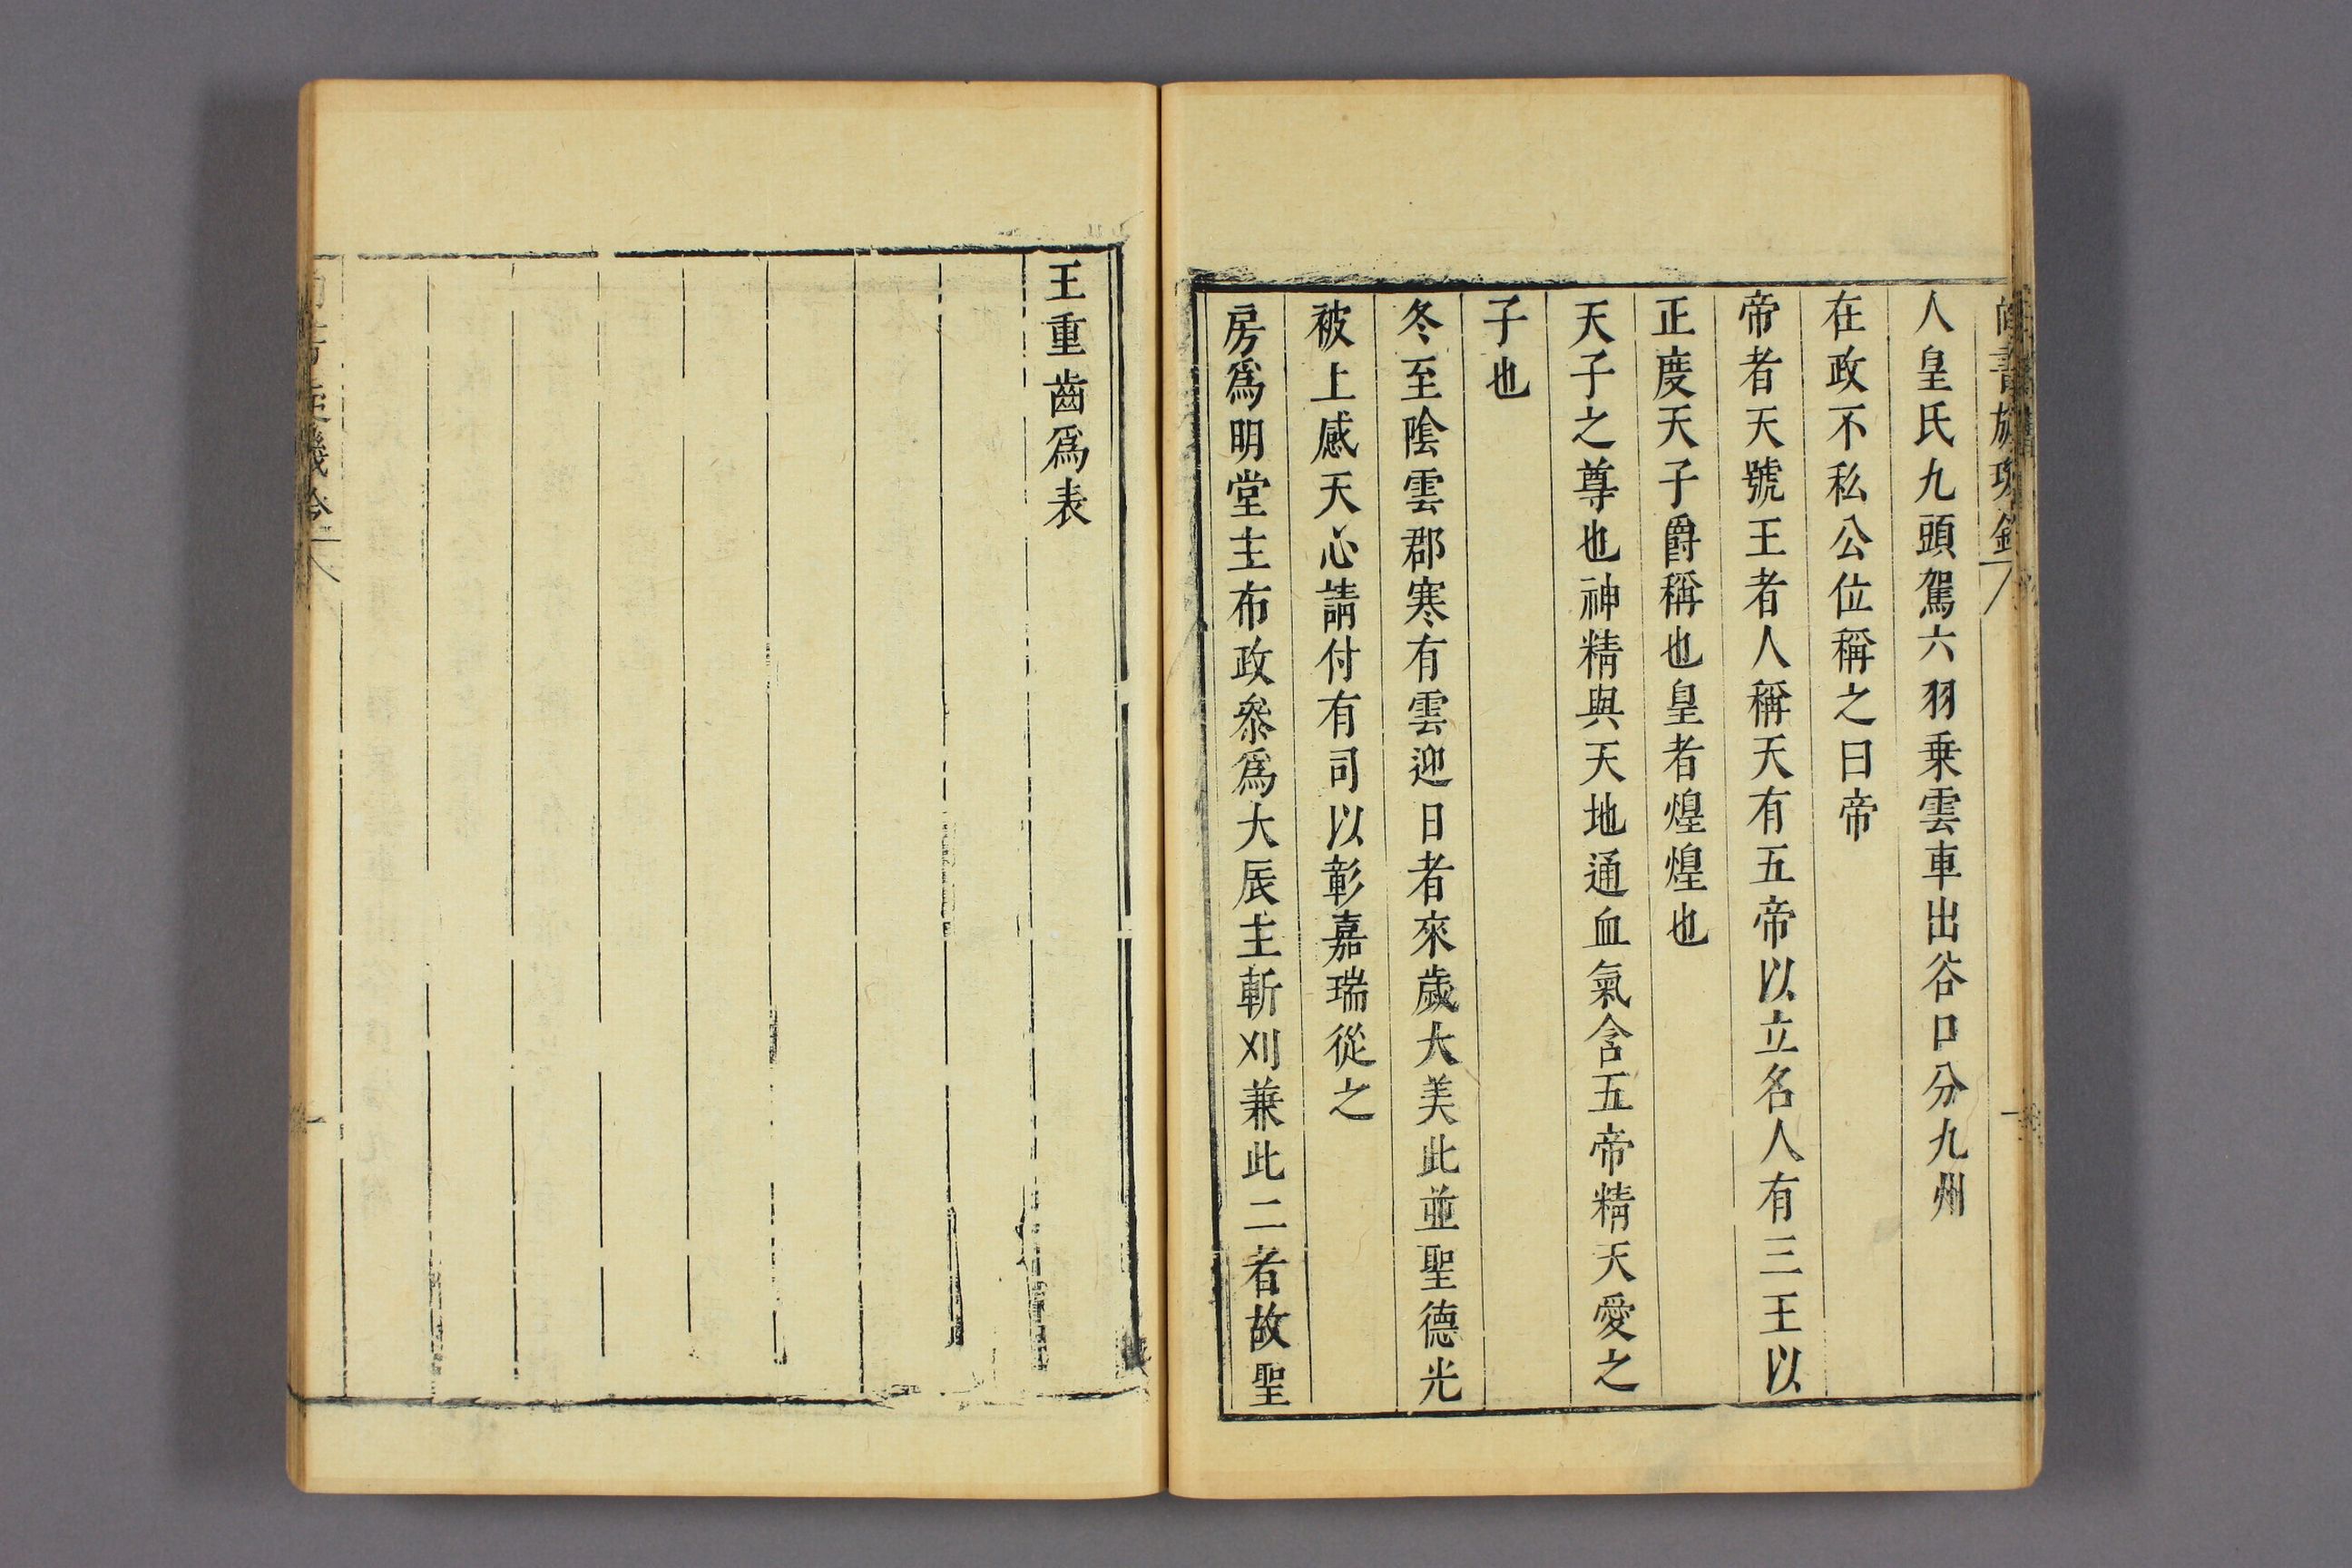 人皇氏九頭駕六羽乗雲車出谷口分九州
在政不私公位稱之曰帝
帝者天號王者人稱天有五帝以立名人有三王以
正度天子爵稱也皇者煌煌也
天子之尊也神精與天地通血氣含五帝精天愛之
子也
冬至陰雲郡寒有雲迎日者來歲大美此並聖德光
被上感天心請付有司以彰嘉瑞從之
房爲明堂主布政叅爲大辰主斬刈兼此二者故聖
王重齒爲表